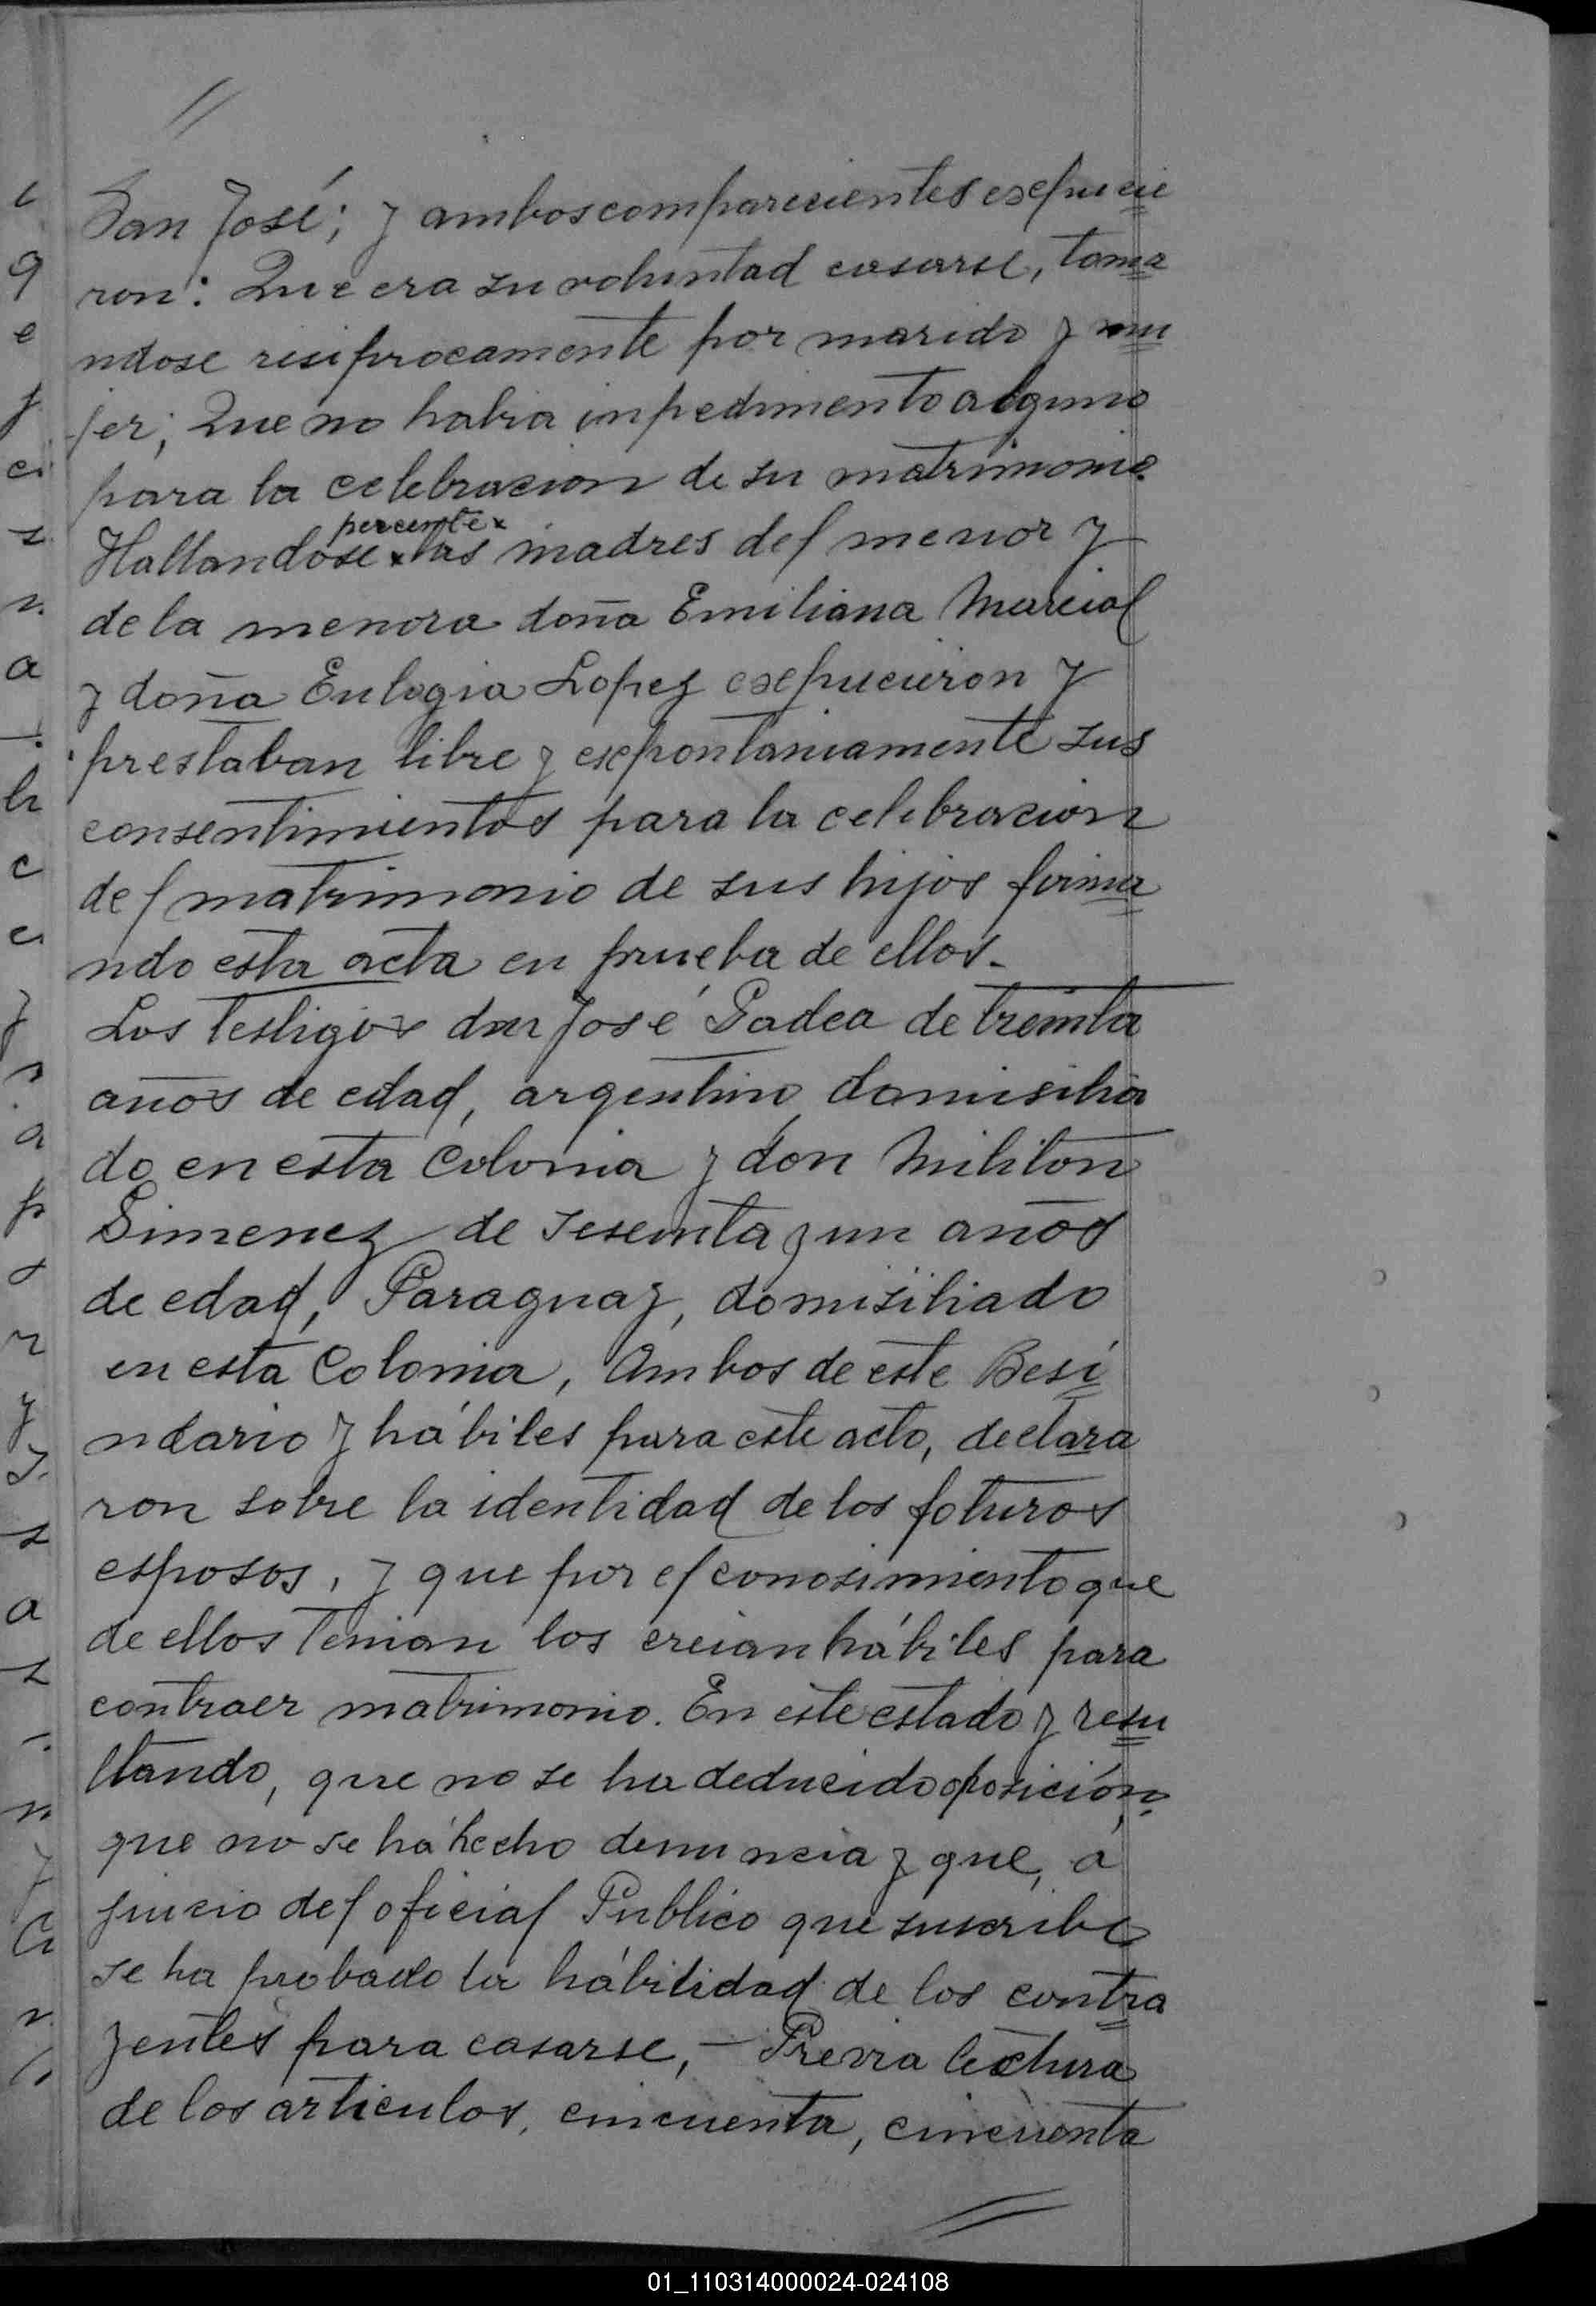 San José; y ambos comparecientes exepucie
ron: Que era su voluntad casarse, toma
ndose resiprocamente por marido y mu
jer; Que no habia inpedimento alguno
para la celebracion de su matrimonio.
percente x
Hallandose x las madres del menor y
de la menora doña Emiliana Marcial
y doña Eulogia Lopez exepucieron y
prestaban libre y exepontaniamente sus
consentimientos para la celebracion
del matrimonio de sus hijos firma
ndo esta acta en prueba de ellos.
Los testigos don José Gadea de treinta
años de edad, argentino, domisilia
do en esta Colonia y don Militon
Simenez de sesenta y un años
de edad, Paraguay, domisiliado
en esta Colonia, Ambos de este Besi
ndario y hábiles para este acto, declara
ron sobre la identidad de los foturos
esposos, y que por el conosimiento que
de ellos tenian los creian hábiles para
contraer matrimonio. En este estado y resu
ltando, que no se ha deducido oposición,
que no se há hecho denuncia y que, á
juicio del oficial Publico que suscribe
se ha probado la hábilidad de los contra
yentes para casarse, - Previa lectura
de los articulos, cincuenta, cincuenta
01_110314000024-024108